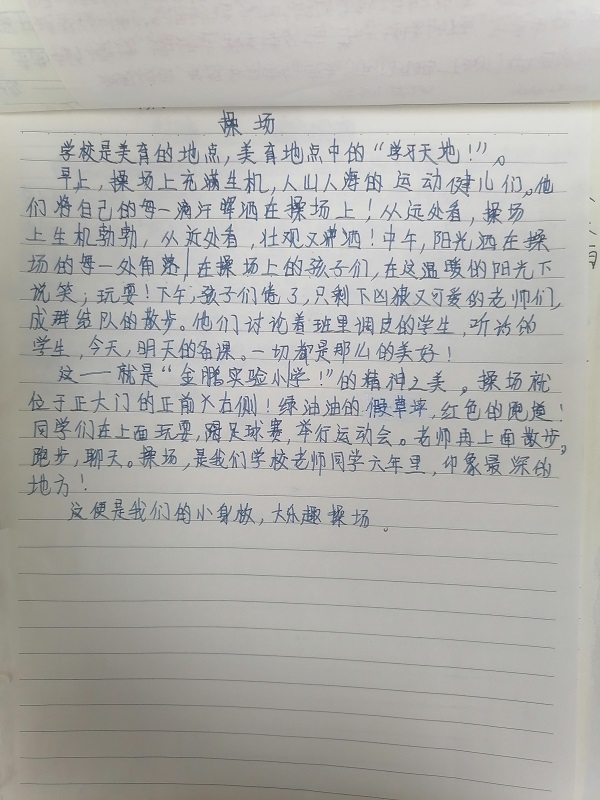 操场
学校是美育的地点,美育地点中的“学习天地!”。
早上,操场上充满生机,人山人海的运动健儿们。他
们将自己的每一滴汗挥洒在操场上!从远处看,操场
上生机勃勃,从近处看,壮观又潇洒!中午,阳光洒在操
场的每一处角落,在操场上的孩子们,在这温暖的阳光下
说笑;玩耍!下午,孩子们倦了,只剩下凶狠又可爱的老师们,
成群结队的散步。他们讨论着班里调皮的学生,听话的
学生,今天,明天的备课。一切都是那么的美好!
这——就是“金鹏实验小学!”的精神之美。操场就
位于正大门的正前大右侧!绿油油的假草坪,红色的跑道!
同学们在上面玩耍,踢足球赛,举行运动会。老师再上面散步,
跑步,聊天。操场,是我们学校老师同学六年里,印象最深的
地方!
这便是我们的小身放,大乐趣操场。